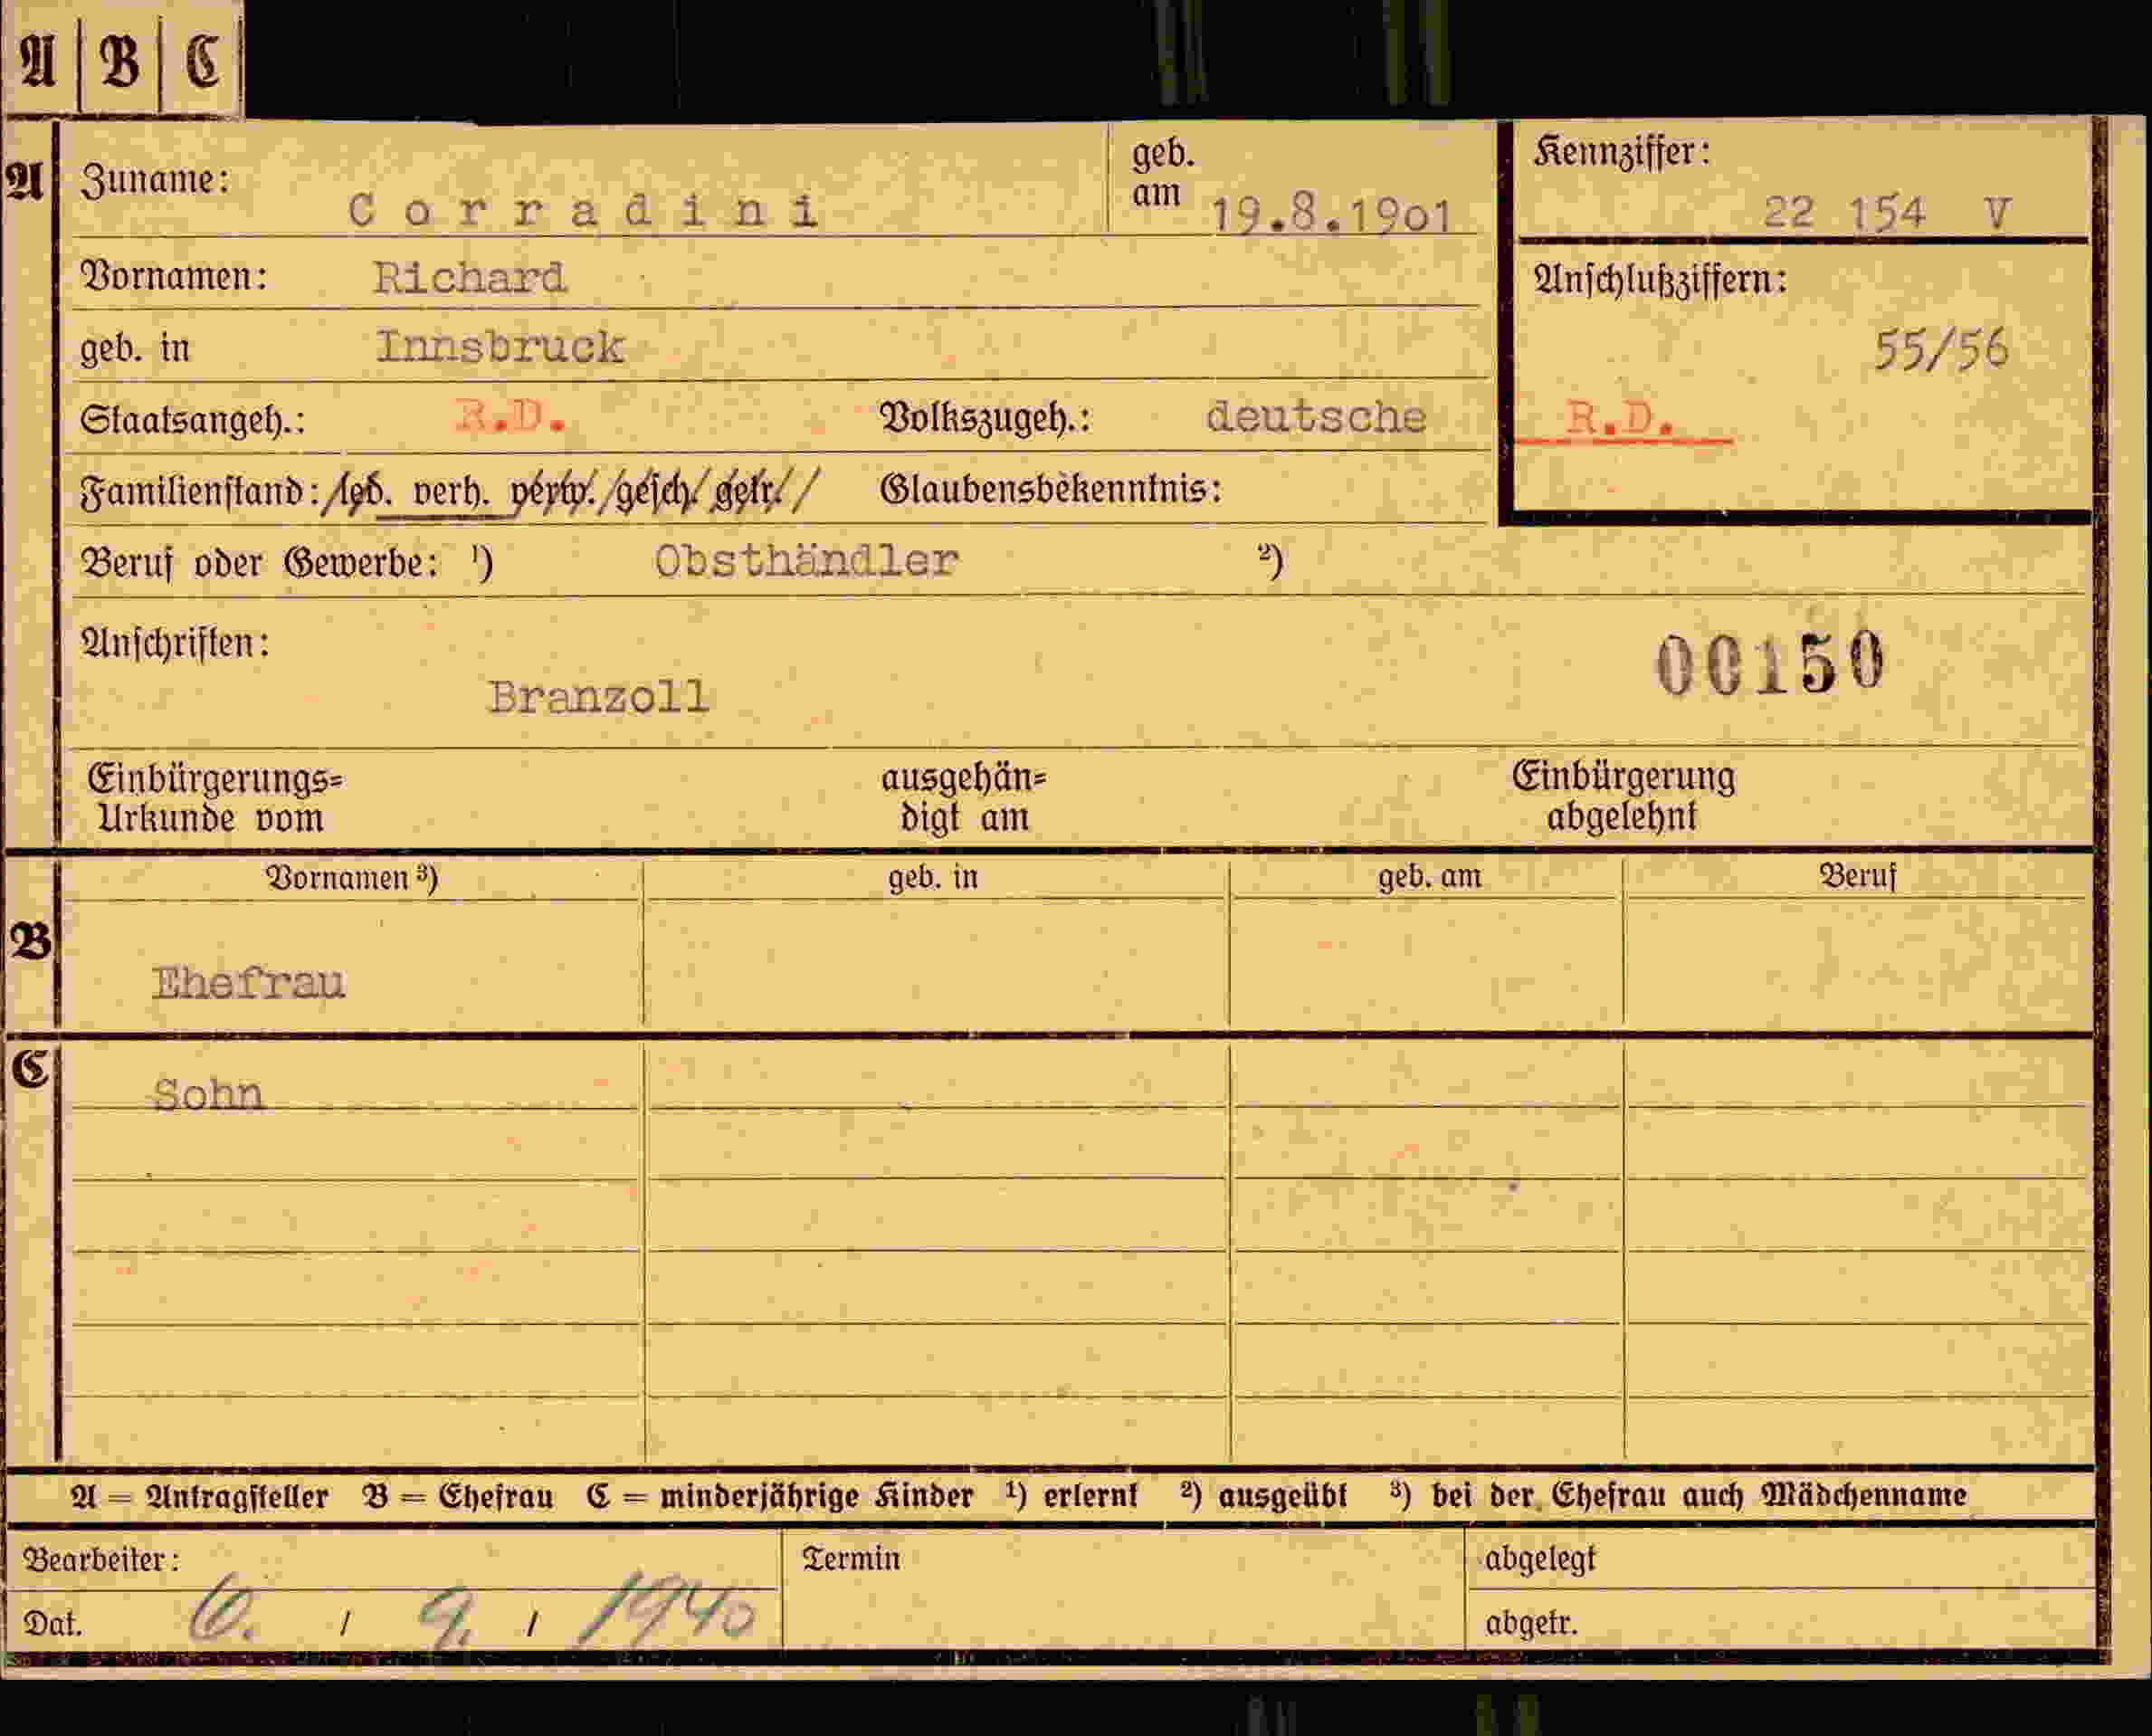 A B C
A Zuname: Corradini geb. am 19.8.1901 Kennziffer: 22 154 V
Vornamen: Richard Anschlußziffern:
geb. in Innsbruck 55/56
Staatsangeh.: R.D. Volkszugeh.: deutsche R.D.
Familienstand: led. verh. verw. gesch. getr. Glaubensbekenntnis:
Beruf oder Gewerbe: ¹) Obsthändler ²)
Anschriften: 00150
Branzoll
Einbürgerungs= ausgehän= Einbürgerung
Urkunde vom digt am abgelehnt
Vornamen ³) geb. in geb. am Beruf
B
Ehefrau
C
Sohn
A = Antragsteller B = Ehefrau C = minderjährige Kinder ¹) erlernt ²) ausgeübt ³) bei der Ehefrau auch Mädchenname
Bearbeiter: Termin abgelegt
Dat. 6. / 9. / 1940 abgetr.